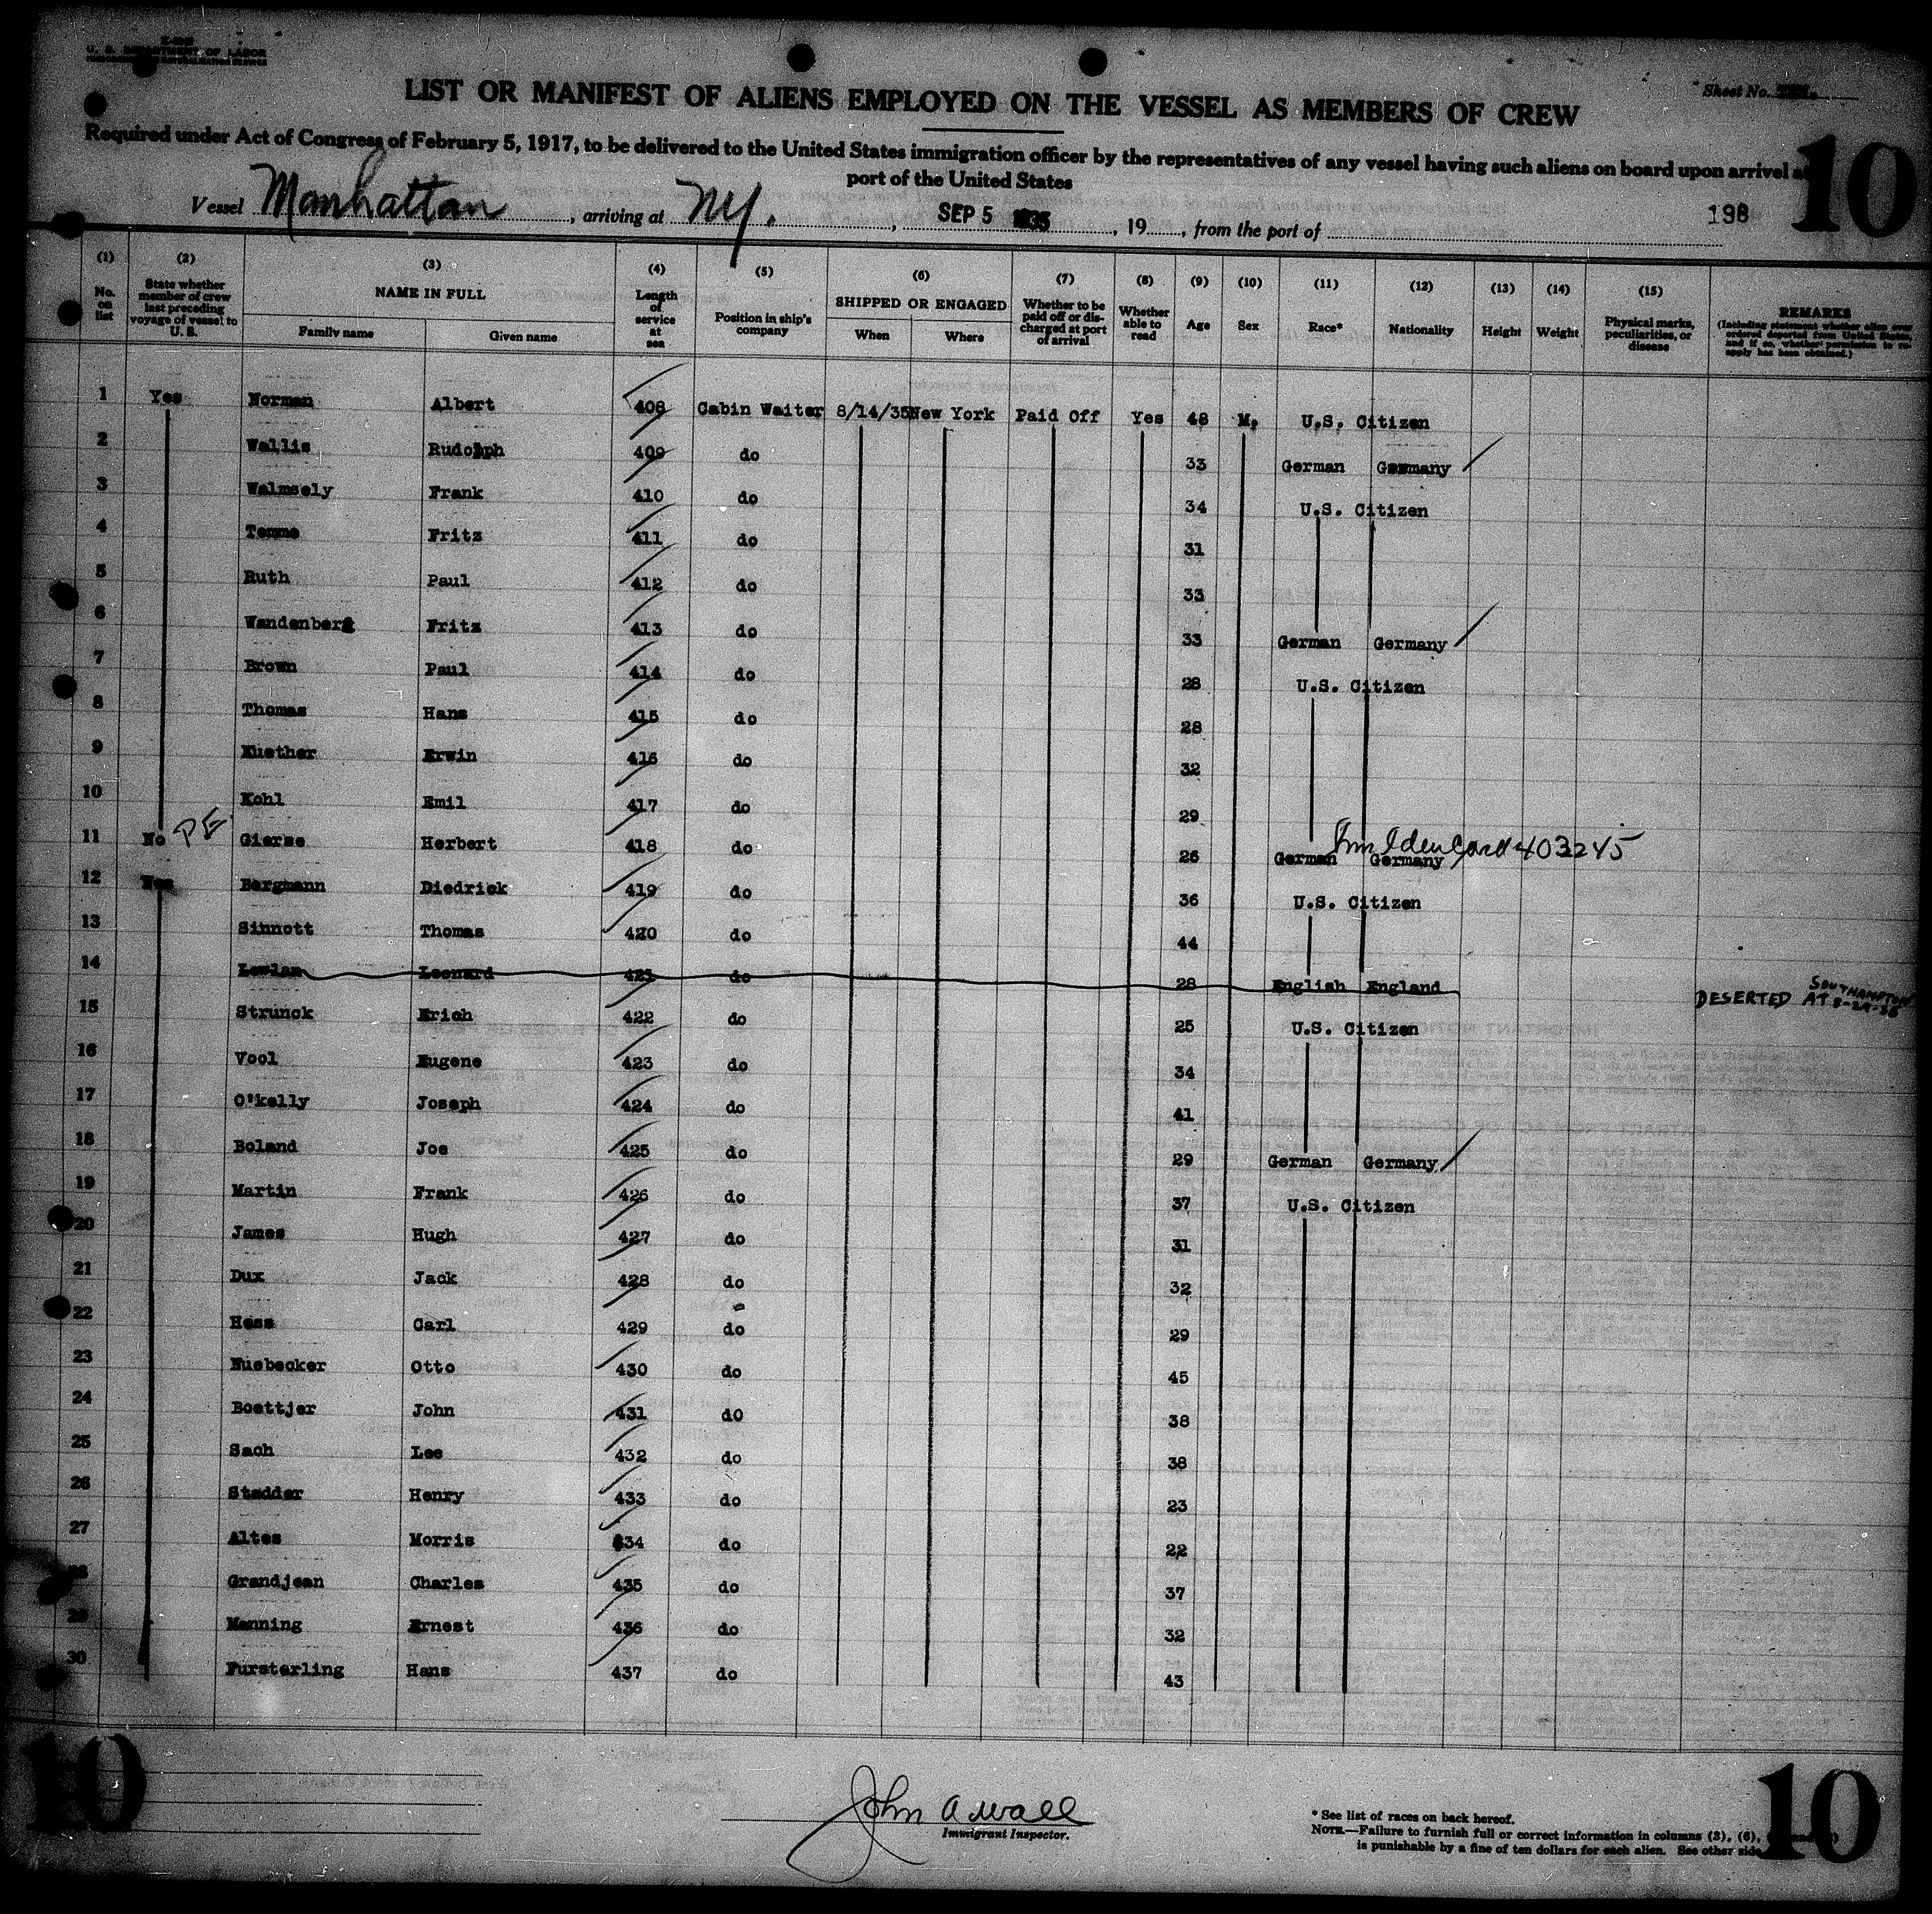 U. S. DEPARTMENT OF LABOR
Sheet No.
LIST OR MANIFEST OF ALIENS EMPLOYED ON THE VESSEL AS MEMBERS OF CREW
Required under Act of Congress of February 5, 1917, to be delivered to the United States immigration officer by the representatives of any vessel having such aliens on board upon arrival
port of the United States
10
Vessel Manhattan, arriving at NY., SEP 5 1935, 19, from the port of
198
(1) (2) (3) (4) (5) (6) (7) (8) (9) (10) (11) (12) (13) (14) (15)
No. on list
State whether member of crew last preceding voyage of vessel to U. S.
NAME IN FULL
Family name Given name
Length of service at sea
Position in ship's company
SHIPPED OR ENGAGED
When Where
Whether to be paid off or discharged at port of arrival
Whether able to read
Age Sex Race* Nationality Height Weight
Physical marks, peculiarities, or disease
REMARKS
(Including statement whether alien ever ordered deported from United States, and if so, whether permission to reapply has been obtained.)
1 Yes Norman Albert 408 Cabin Waiter 8/14/35 New York Paid Off Yes 48 M. U.S. Citizen
2 Wallis Rudolph 409 do 33 German Germany
3 Walmsely Frank 410 do 34 U.S. Citizen
4 Temme Fritz 411 do 31
5 Ruth Paul 412 do 33
6 Wandenberg Fritz 413 do 33 German Germany
7 Brown Paul 414 do 28 U.S. Citizen
8 Thomas Hans 415 do 28
9 Kuether Erwin 416 do 32
10 Kohl Emil 417 do 29
11 No PE Gierse Herbert 418 do 26 German Germany Imm Iden Card 403245
12 Yes Bergmann Diedrick 419 do 36 U.S. Citizen
13 Sinnott Thomas 420 do 44
14 Lowlan Leonard 421 do 28 English England DESERTED AT SOUTHAMPTON 8-29-35
15 Strunck Erich 422 do 25 U.S. Citizen
16 Vool Eugene 423 do 34
17 O'kelly Joseph 424 do 41
18 Boland Joe 425 do 29 German Germany
19 Martin Frank 426 do 37 U.S. Citizen
20 James Hugh 427 do 31
21 Dux Jack 428 do 32
22 Hess Carl 429 do 29
23 Nuebecker Otto 430 do 45
24 Boettjer John 431 do 38
25 Sach Leo 432 do 38
26 Stadder Henry 433 do 23
27 Altes Morris 434 do 22
28 Grandjean Charles 435 do 37
29 Manning Ernest 436 do 32
30 Fursterling Hans 437 do 43
10
John A Wall
Immigrant Inspector.
* See list of races on back hereof.
NOTE.—Failure to furnish full or correct information in columns (3), (6),
is punishable by a fine of ten dollars for each alien. See other side
10